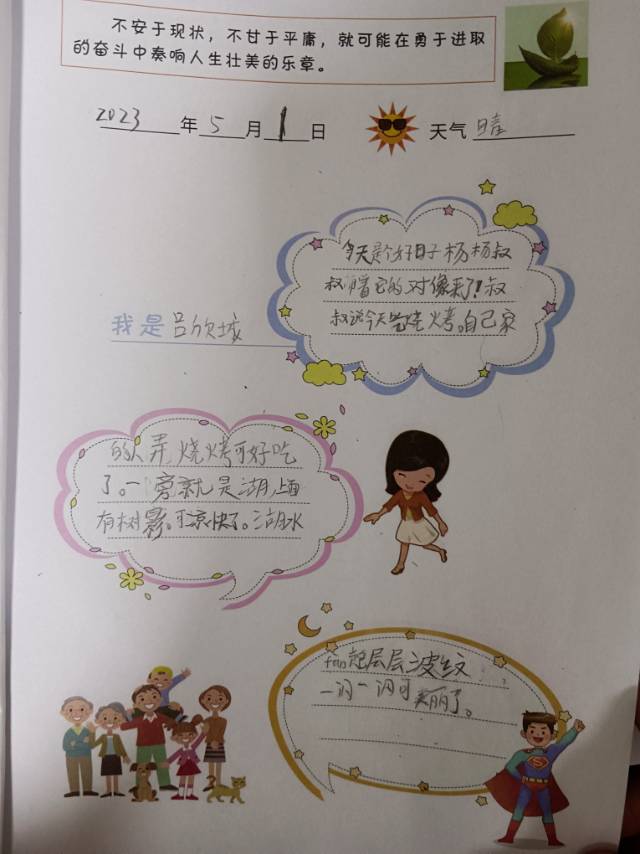 不安于现状，不甘于平庸，就可能在勇于进取
的奋斗中奏响人生壮美的乐章。
2023年5月1日 天气晴
今天是个好日子杨杨叔
叔带它的对像来了!叔
我是吕欣城
叔说今天吃烧烤。自己家
的人弄烧烤可好吃
了。一旁就是湖,上面
有树影。可凉快了。湖水
fan起层层波纹
一闪一闪可美丽了。